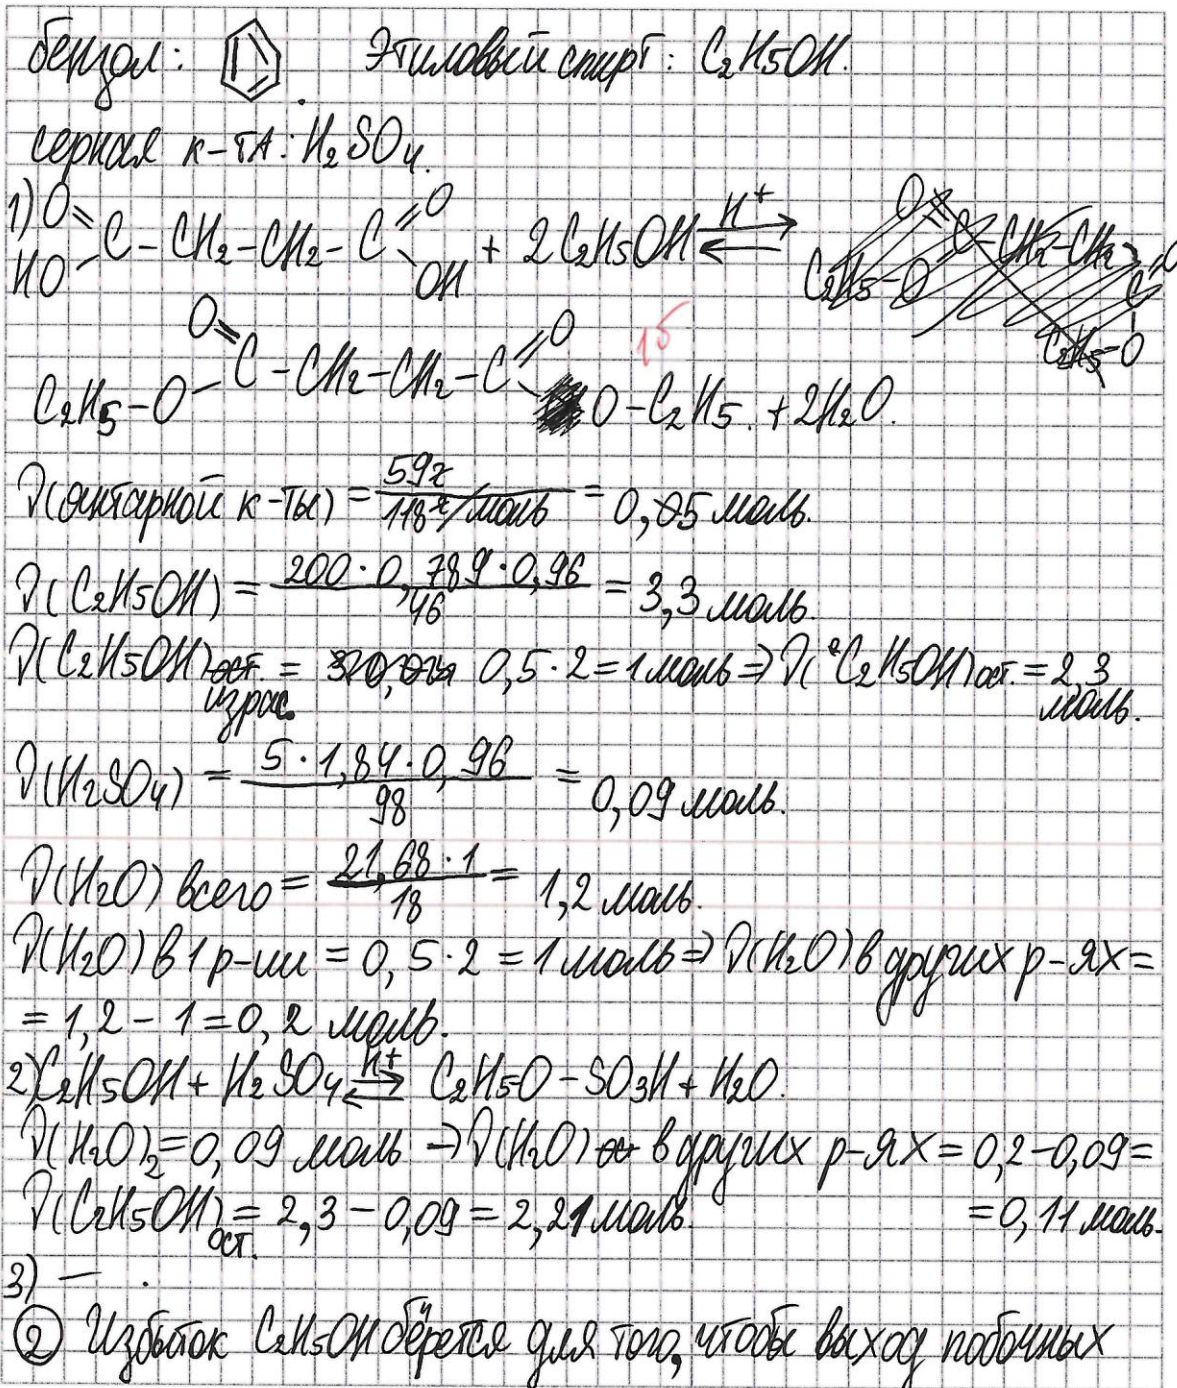 бензол: Этиловый спирт: C₂H₅OH.
серная к-та: H₂SO₄.
1) O=C(HO)-CH₂-CH₂-C(=O)OH + 2C₂H₅OH ⇄ (H⁺)
C₂H₅-O-C(=O)-CH₂-CH₂-C(=O)-O-C₂H₅ + 2H₂O.
1б
ν(янтарной к-ты) = 59г / 118 г/моль = 0,5 моль.
ν(C₂H₅OH) = 200·0,789·0,96 / 46 = 3,3 моль.
ν(C₂H₅OH) израс. = 0,5·2 = 1 моль ⇒ ν(C₂H₅OH) ост. = 2,3 моль.
ν(H₂SO₄) = 5·1,84·0,96 / 98 = 0,09 моль.
ν(H₂O) всего = 21,68·1 / 18 = 1,2 моль.
ν(H₂O) в 1 р-ии = 0,5·2 = 1 моль ⇒ ν(H₂O) в других р-ях =
= 1,2 - 1 = 0,2 моль.
2) C₂H₅OH + H₂SO₄ ⇄ (H⁺) C₂H₅O-SO₃H + H₂O.
ν(H₂O)₂ = 0,09 моль → ν(H₂O) в других р-ях = 0,2-0,09 =
ν(C₂H₅OH) ост. = 2,3 - 0,09 = 2,21 моль. = 0,11 моль.
3) — .
② Избыток C₂H₅OH берётся для того, чтобы выход побочных